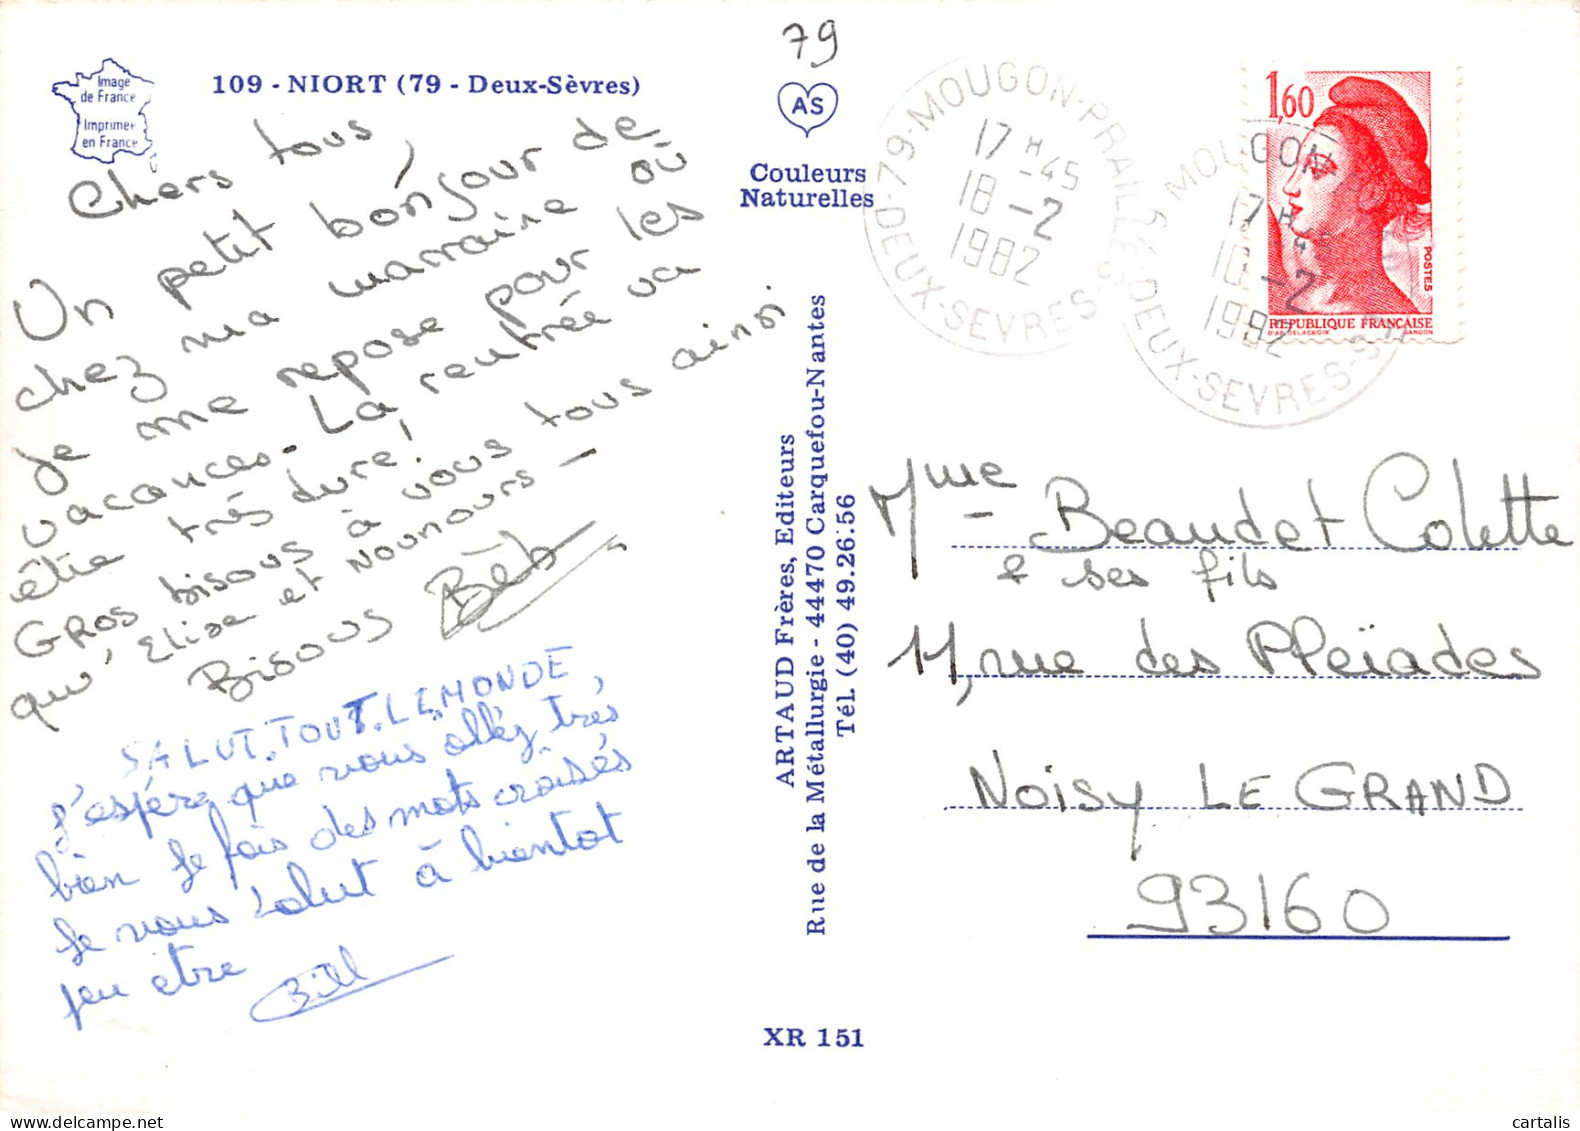 79
Image
de France
Imprimer
en France
109 - NIORT (79 - Deux-Sèvres)
AS
Couleurs
Naturelles
Chers tous,
Un petit bonjour de
chez ma marraine où
je me repose pour les
vacances - La rentrée va
être très dure!
Gros bisous à vous tous ainsi
qu'Elise et Nounours -
Bisous Béb
SALUT.TOUT.LE MONDE
J'espére que vous alléz trés
bien Je fais des mots croisés
Je vous salut à bientot
peu etre
Bill
ARTAUD Frères, Editeurs
Rue de la Métallurgie - 44470 Carquefou-Nantes
Tél. (40) 49.26.56
XR 151
79-MOUGON-PRAILLES
17 H -45
18 -2
1982
DEUX-SEVRES-S
MOUGON
17 H 45
18 -2
1982
DEUX-SEVRES-S
1,60
POSTES
REPUBLIQUE FRANÇAISE
D'AP. DELACROIX GANDON
Mme Beaudet Colette
& ses fils
11, rue des Pleïades
NOISY LE GRAND
93160
cartalis
delcampe.net